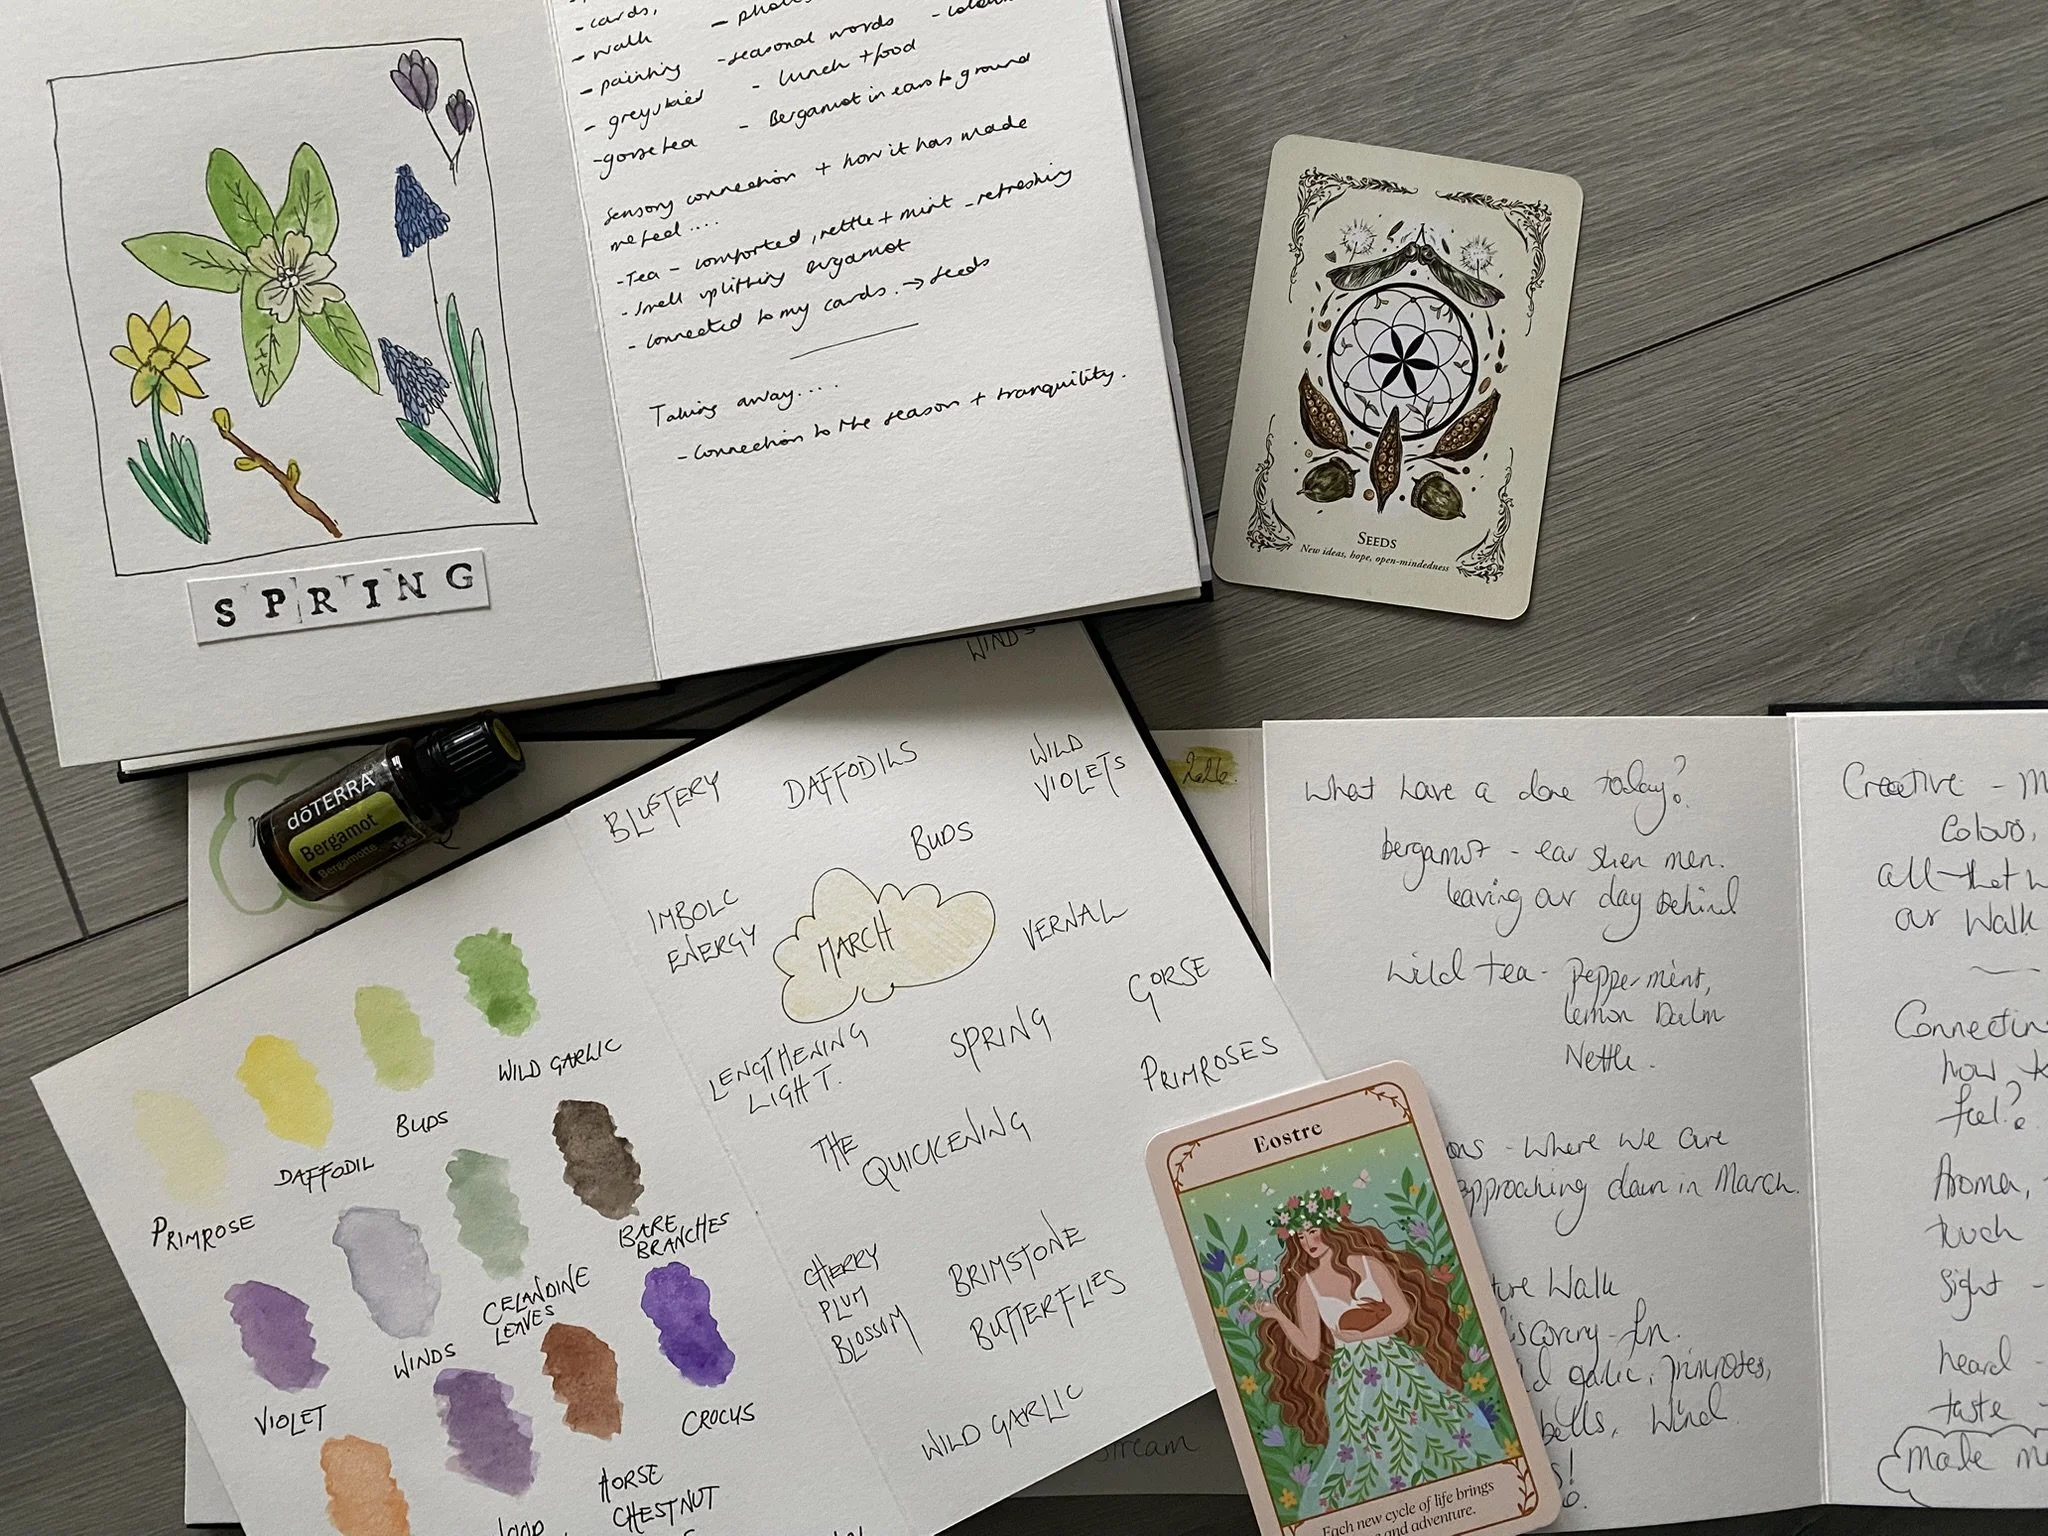 - cards,
- walk
- painting - seasonal words
- grey skies - lunch + food
- gorse tea - Bergamot in ears to ground
Sensory connection + how it has made
me feel ....
- Tea - comforted, nettle + mint - refreshing
- Smell uplifting bergamot
- connected to my cards. → Seeds
Taking away....
- Connection to the season + tranquility.
SPRING
SEEDS
New ideas, hope, open-mindedness
dōTERRA
Bergamot
Bergamote
WINDS
BLUSTERY
DAFFODILS
WILD
VIOLETS
BUDS
IMBOLC
ENERGY
MARCH
VERNAL
GORSE
LENGTHENING
LIGHT.
SPRING
PRIMROSES
THE
QUICKENING
CHERRY
PLUM
BLOSSOM
BRIMSTONE
BUTTERFLIES
WILD GARLIC
WILD GARLIC
BUDS
DAFFODIL
PRIMROSE
BARE
BRANCHES
CELANDINE
LEAVES
WINDS
VIOLET
CROCUS
HORSE
CHESTNUT
stream
Eostre
Each new cycle of life brings
and adventure.
What have a done today?
bergamot - ear shen men.
leaving our day behind
Wild tea - Peppermint,
lemon Balm
Nettle.
- where we are
approaching dawn in March.
Walk
garlic, primroses,
Wind
Creative -
Colours,
all that
our Walk
how
feel?
Aroma,
touch
Sight -
heard -
taste -
made me